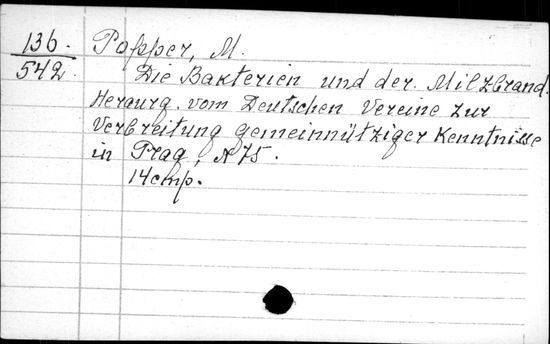 136. Popper, M.
542. Die Bakterien und der Milzbrand.
Herausg. vom Deutschen Vereine zur
Verbreitung gemeinnütziger Kenntnisse
in Prag, N 75.
14 cmp.